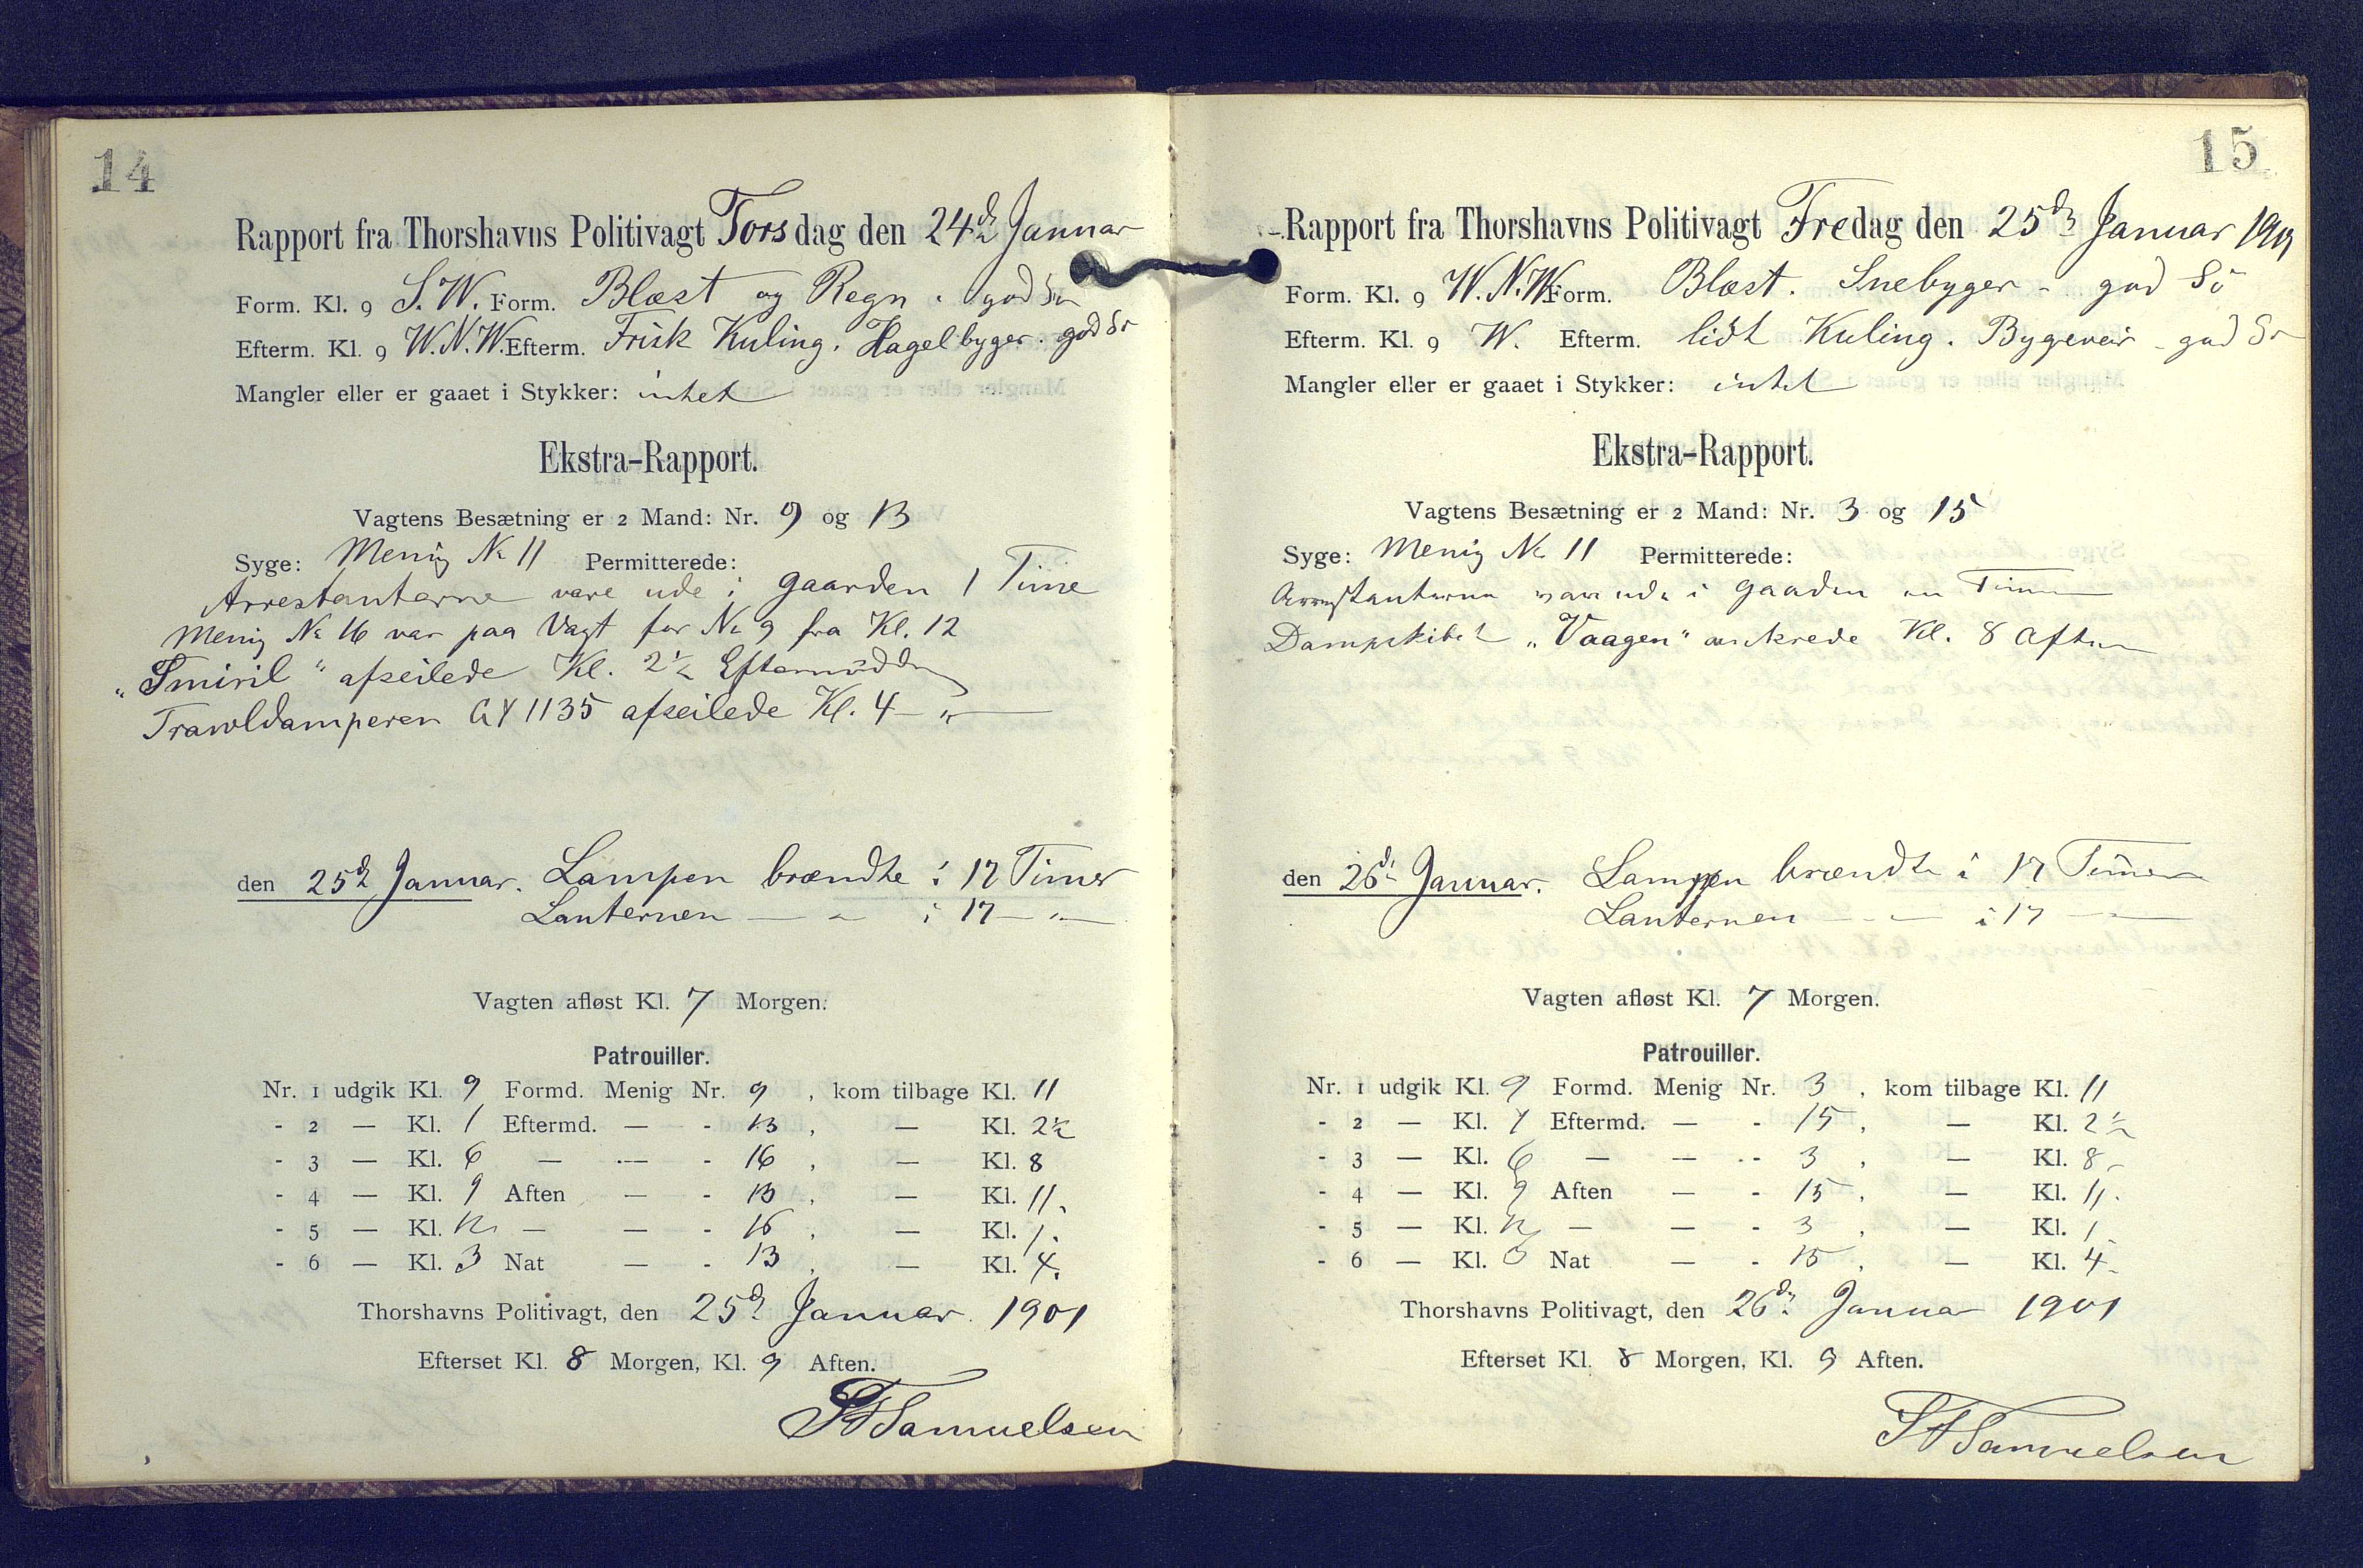 14
Rapport fra Thorshavns Politivagt Torsdag den 24de Januar
Form. Kl. 9 S.W. Form. Blæst og Regn. god Sø
Efterm. Kl. 9 W.N.W. Efterm. Frisk Kuling. Hagelbyger. god Sø
Mangler eller er gaaet i Stykker: intet
Ekstra-Rapport.
Vagtens Besætning er 2 Mand: Nr. 9 og 13
Syge: Menig No 11 Permitterede:
Arrestanterne vare ude i Gaarden 1 Time
Menig No 16 var paa Vagt for No 9 fra Kl. 12
"Smiril" afseilede Kl. 2½ Eftermiddag
Trawldamperen GY 1135 afseilede Kl. 4 — " —
den 25de Januar. Lampen brændte i 17 Timer
Lanternen — " — i 17 — " —
Vagten afløst Kl. 7 Morgen.
Patrouiller.
Nr. 1 udgik Kl. 9 Formd. Menig Nr. 9, kom tilbage Kl. 11
- 2 — Kl. 1 Eftermd. — - 13, — Kl. 2½
- 3 — Kl. 6 — — - 16, — Kl. 8
- 4 — Kl. 9 Aften — - 13, — Kl. 11.
- 5 — Kl. 12 — — - 16, — Kl. 1.
- 6 — Kl. 3 Nat — - 13, — Kl. 4.
Thorshavns Politivagt, den 25de Januar 1901
Efterset Kl. 8 Morgen, Kl. 9 Aften.
Samuelsen
15
Rapport fra Thorshavns Politivagt Fredag den 25de Januar 1901
Form. Kl. 9 W.N.W. Form. Blæst. Snebyger - god Sø
Efterm. Kl. 9 W. Efterm. lidt Kuling. Bygeveir - god Sø
Mangler eller er gaaet i Stykker: intet
Ekstra-Rapport.
Vagtens Besætning er 2 Mand: Nr. 3 og 15
Syge: Menig No 11 Permitterede:
Arrestanterne vare ude i Gaarden en Time
Dampskibet "Vaagen" ankrede Kl. 8 Aften
den 26de Januar. Lampen brændte i 17 Timer
Lanternen — " — i 17 — " —
Vagten afløst Kl. 7 Morgen.
Patrouiller.
Nr. 1 udgik Kl. 9 Formd. Menig Nr. 3, kom tilbage Kl. 11
- 2 — Kl. 1 Eftermd. — - 15, — Kl. 2½
- 3 — Kl. 6 — — - 3, — Kl. 8
- 4 — Kl. 9 Aften — - 15, — Kl. 11.
- 5 — Kl. 12 — — - 3, — Kl. 1
- 6 — Kl. 3 Nat — - 15, — Kl. 4
Thorshavns Politivagt, den 26de Januar 1901
Efterset Kl. 8 Morgen, Kl. 9 Aften.
Samuelsen